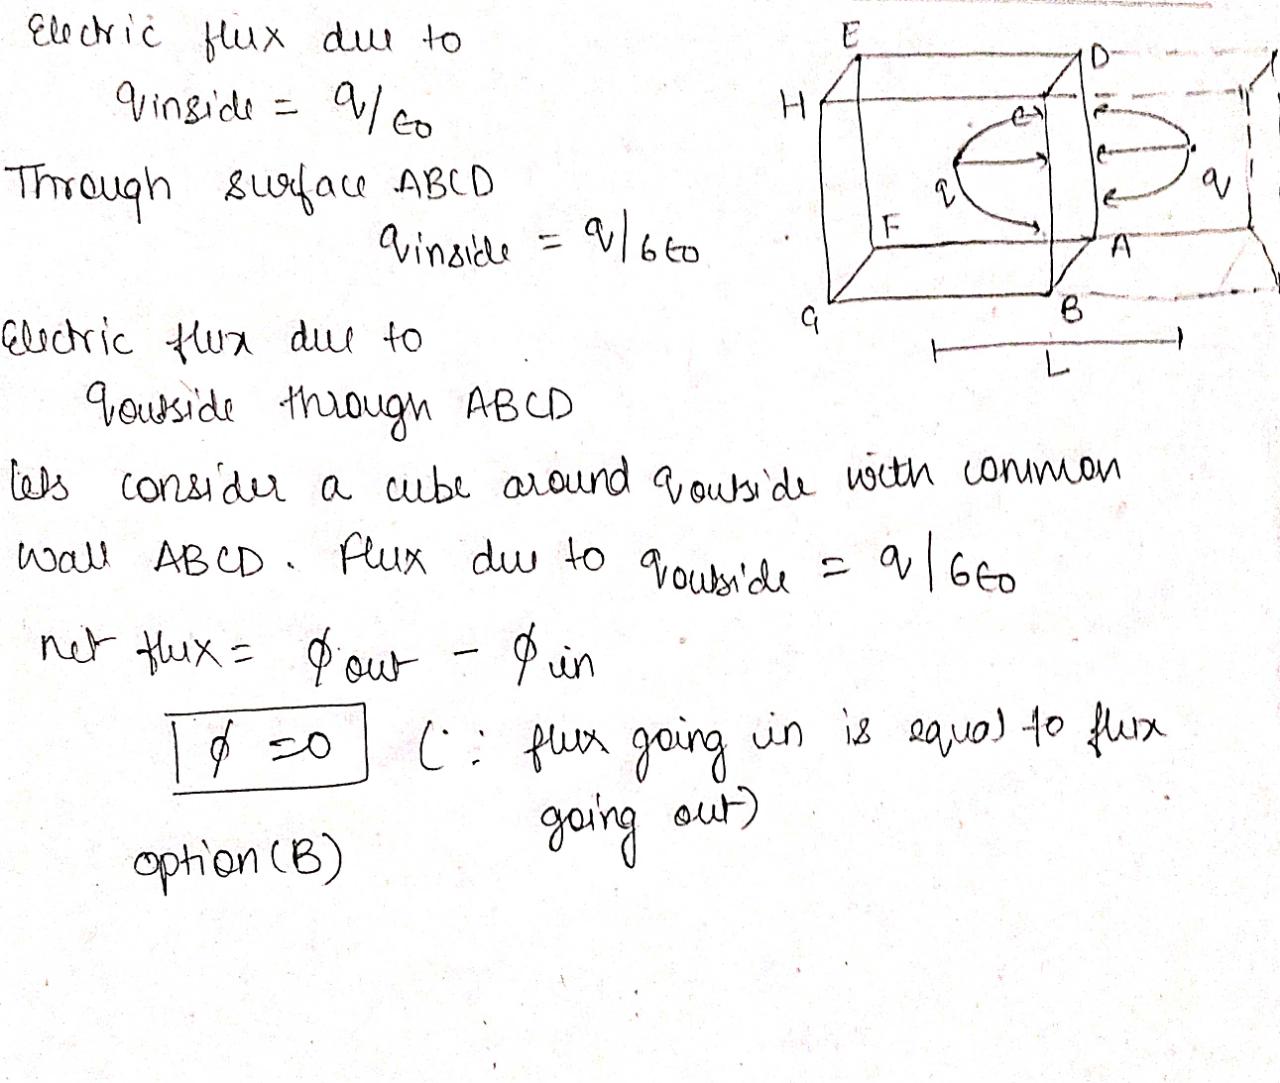 Electric flux due to
qinside = q/ϵ0
Through surface ABCD
qinside = q/6ϵ0
Electric flux due to
qoutside through ABCD
lets consider a cube around qoutside with common
wall ABCD. Flux due to qoutside = q/6ϵ0
net flux = ϕout - ϕin
ϕ = 0 (∵ flux going in is equal to flux
going out)
option (B)
E
D
H
q
q
F
A
G
B
L